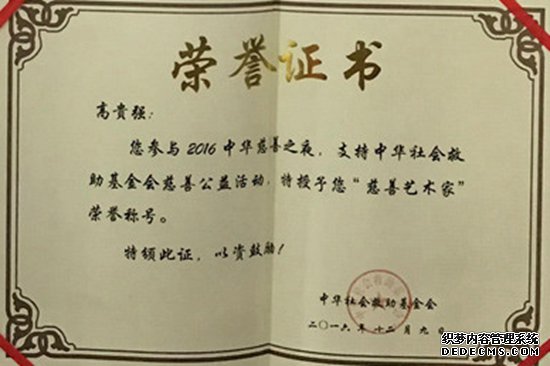 荣誉证书
高贵强：
您参与2016中华慈善之夜，支持中华社会救
助基金会慈善公益活动，特授予您“慈善艺术家”
荣誉称号。
特颁此证，以资鼓励！
中华社会救助基金会
二〇一六年十二月九日
织梦内容管理系统
DEDECMS.COM